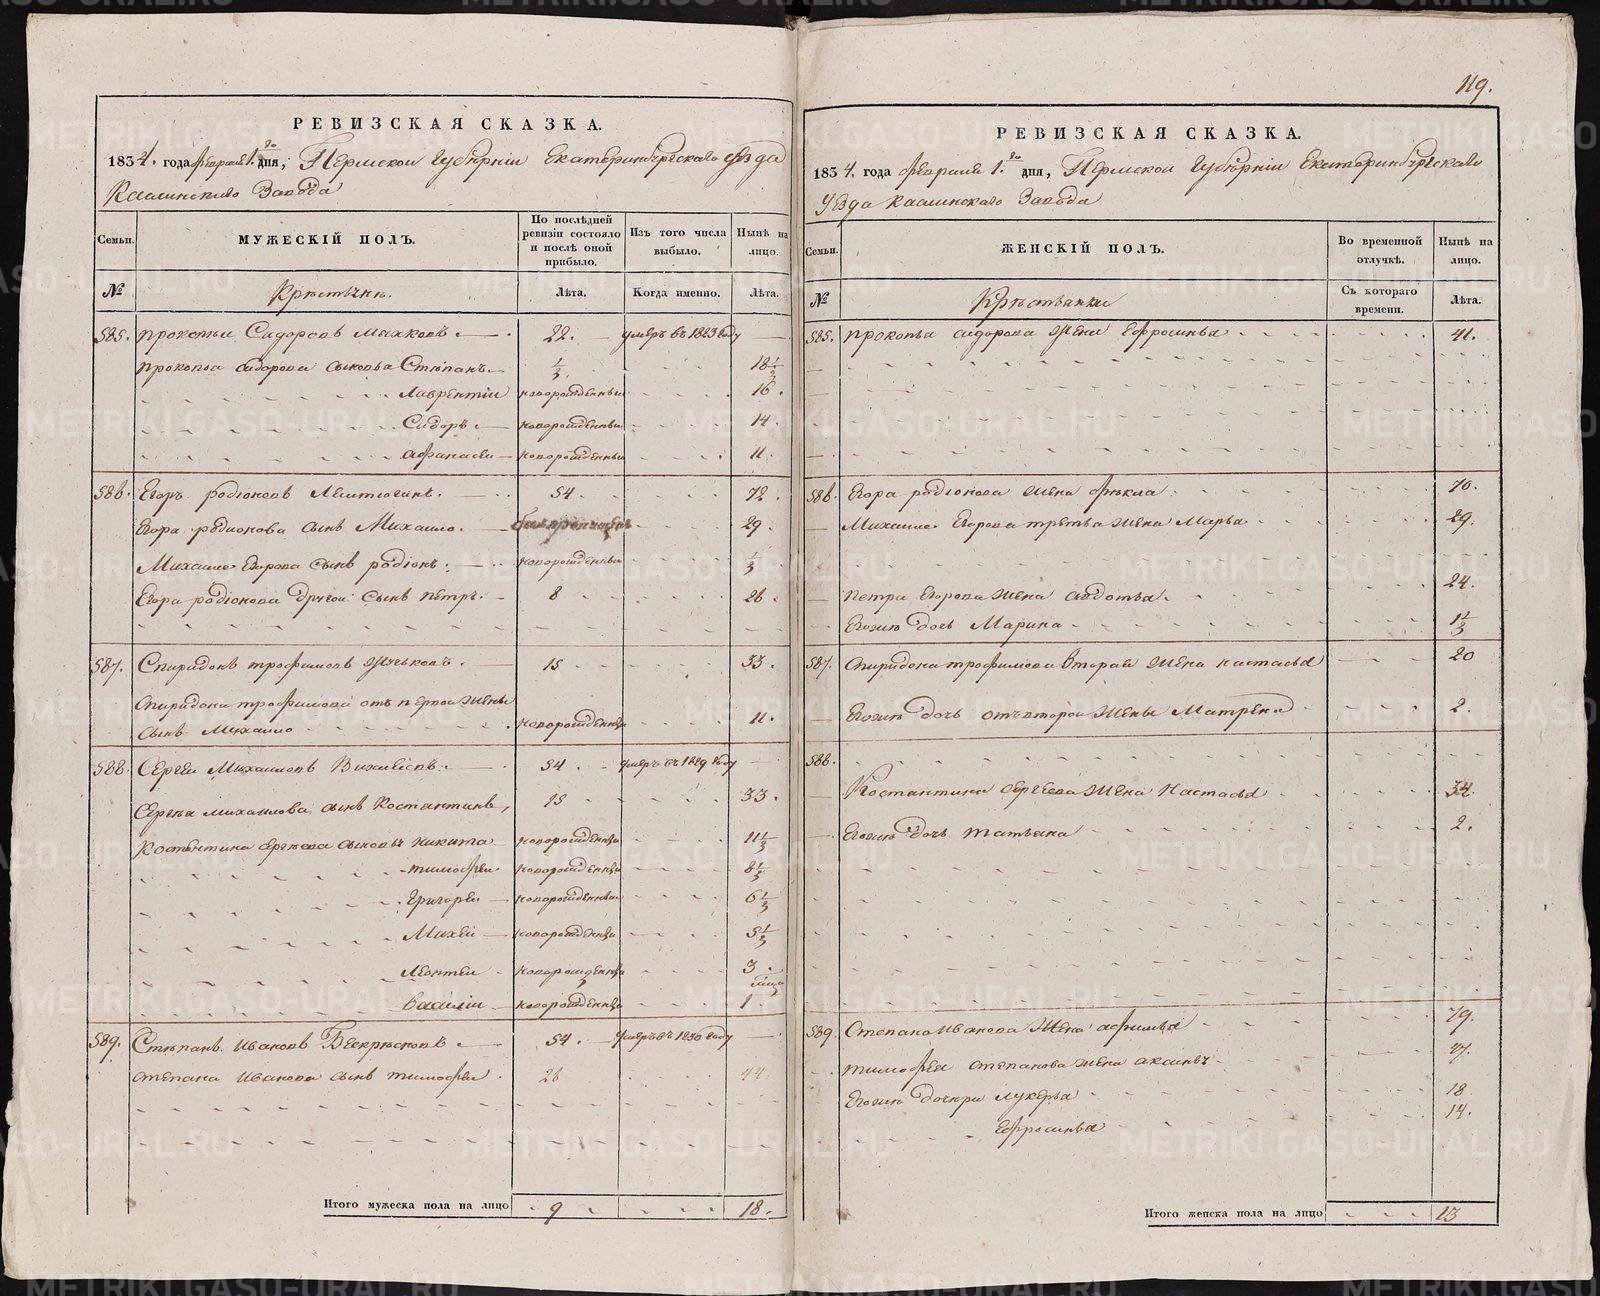 119.
РЕВИЗСКАЯ СКАЗКА.
1834. года февраля 1го дня, Пермской Губѣрніи Екатеринбургскаго уѣзда
Каслинскаго Завода
Семьи. МУЖЕСКІЙ ПОЛЪ. По послѣдней ревизіи состояло и послѣ оной прибыло. Изъ того числа выбыло. Нынѣ на лицо.
№ Крѣстьянѣ. Лѣта. Когда именно. Лѣта.
585. Прокопьи Сидоровъ 22. умеръ въ 1823 году
Прокопьи Сидорова сыновья Стѣпанъ 1/3 18 1/3
Лаврентіи новорожденныи 16.
Сидоръ новорожденныи 14.
Афанасеи новорожденныи 11.
586. Егоръ Родіоновъ 54. 72.
Егора Родионова сынъ Михаило. 29.
Михаило Егорова сынъ Родіонъ. новорожденныи 1/3
Егора Родіонова другои сынъ Петръ. 8 26.
587. Спиридонъ Трофимовъ 15 33.
Спиридона Трофимова отъ первои жены
сынъ Михаило новорожденныи 11.
588. Сергеи Михаиловъ 54. умеръ въ 1829 году
Сергѣя Михаилова сынъ Костантинъ 15 33.
Костентина Сергѣева сыновья Никита новорожденныи 11 1/3
Тимофеи новорожденныи 8 1/3
Григореи новорожденныи 6 1/3
Михеи новорожденныи 5 1/3
Леонтеи новорожденныи 3.
Василіи новорожденныи 1
589. Стѣпанъ Ивановъ 54. умеръ въ 1830 году
Степана Иванова сынъ Тимофеи. 26 44.
Итого мужеска пола на лицо 9 18.
РЕВИЗСКАЯ СКАЗКА.
1834. года февраля 1го дня, Пермской Губѣрніи Екатеринбургскаго
Уѣзда Каслинскаго Завода
Семьи. ЖЕНСКІЙ ПОЛЪ. Во временной отлучкѣ. Нынѣ на лицо.
№ Крѣстьянки Съ котораго времени. Лѣта.
585. Прокопья Сидорова жена Ефросинья 41.
586. Егора Родіонова жена Фѣкла 70.
Михаило Егорова третья жена Марья 29.
Петра Егорова жена Авдотья. 24.
Егожъ дочь Марина 1 1/3
587. Спиридона Трофимова вторая жена Настасья 20
Егожъ дочь отъ второи жены Матрена 2.
588.
Костантина Сергѣева жена Настасья 34.
Егожъ дочь Татьяна 2.
589. Степана Иванова жена Афимья 79.
Тимофея Степанова жена Аксинья 47.
Егожъ дочери Лукерья 18
Ефросинья 14.
Итого женска пола на лицо 13
METRIKI.GASO-URAL.RU